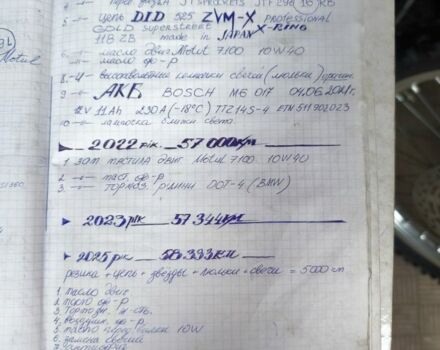 JTSprockets JTF
5 - цепь DID 525 ZVM-X professional
GOLD superstreet X-RING
118 ZB made in JAPAN
6 - масло двиг Motul 7100 10W40
масло ф-р
8 - 4 - высоковольтн свечей (люльки)
9 - АКБ BOSCH M6 017 04.06.2021г.
12V 11Ah 230A (-18°C) TTZ14S-4 ETN 511902023
10 лампочка ближн света
2022 рік. 57 000км
1. зам мастила двиг Motul 7100 10W40
2. маст. ф-р
3. тормоз. рідини DOT-4 (BMW)
2023 рік 57 344км
2025 рік 58 333км
резина + цепь + звезды + люльки + свечи = 5000
1. масло двиг
2. масло ф-р
3. Тормозн.
4. воздушн. ф-р
5. масло перед. вилки 10W
6. замена свечей
Motul